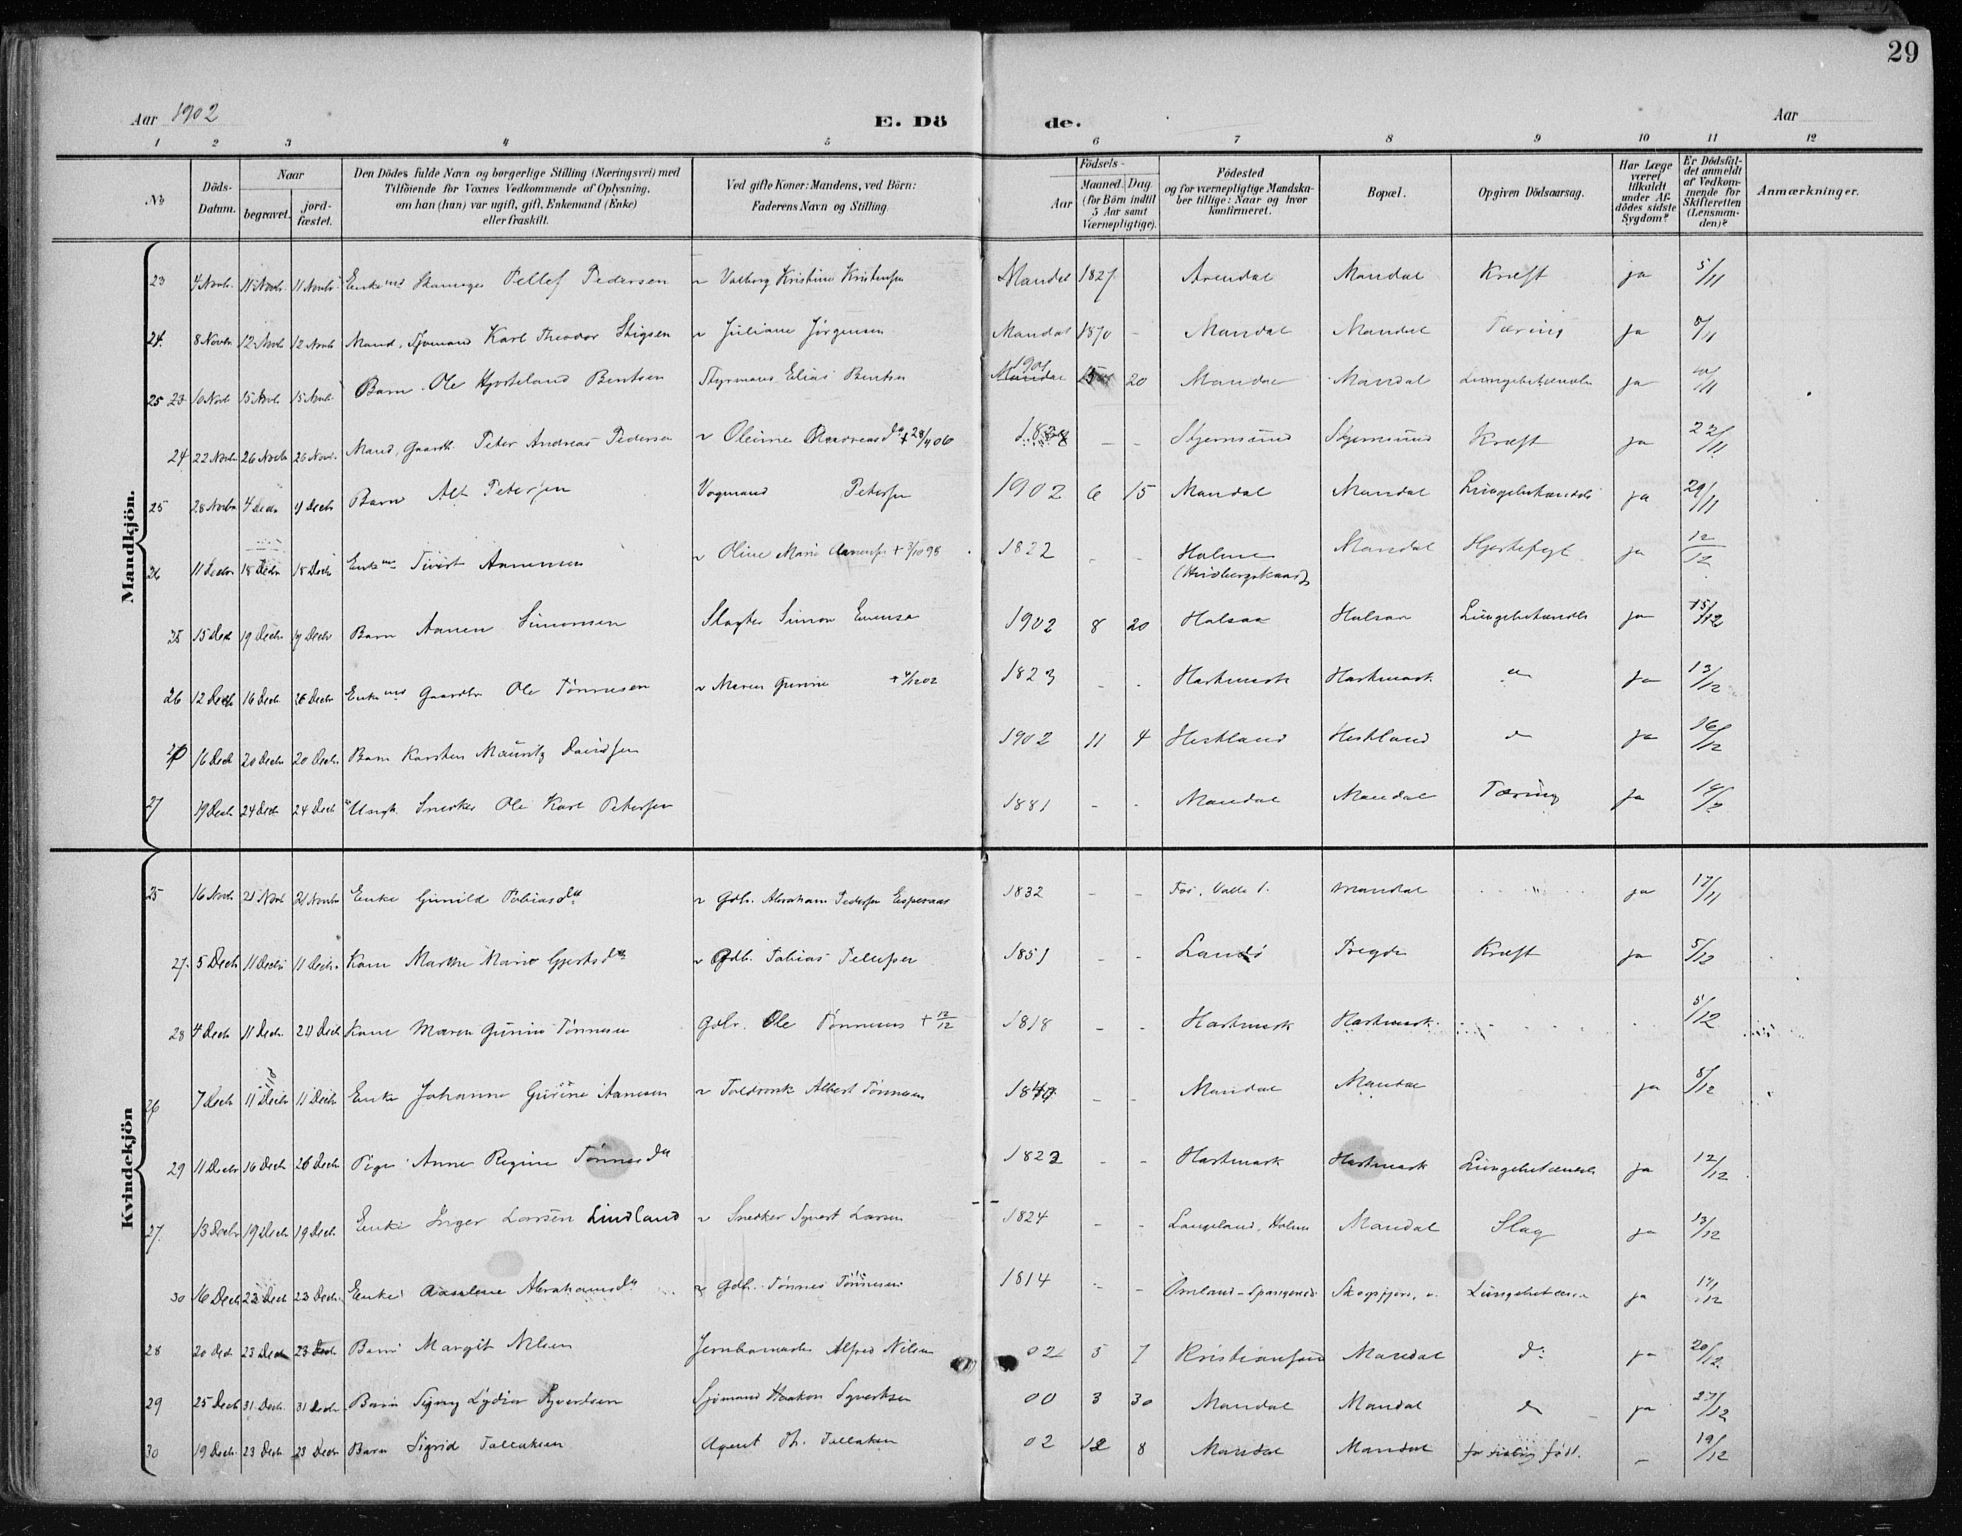 29
Aar 1902
E. Dö
de.
Aar
1 2 3 4 5 6 7 8 9 10 11 12
No
Döds-Datum.
Naar
begravet.
jord-fæstet.
Den Dödes fulde Navn og borgerlige Stilling (Næringsvei) med
Tilföiende for Voxnes Vedkommende af Oplysning,
om han (hun) var ugift, gift, Enkemand (Enke)
eller fraskilt.
Ved gifte Koner: Mandens, ved Börn:
Faderens Navn og Stilling.
Födsels-
Aar
Maaned. Dag
(for Börn indtil
5 Aar samt
Værnepligtige).
Födested
og for værnepligtige Mandska-
ber tillige: Naar og hvor
konfirmeret.
Bopæl.
Opgiven Dödsaarsag.
Har Læge
været
tilkaldt
under Af-
dödes sidste
Sygdom?
Er Dödsfal-
det anmeldt
af Vedkom-
mende for
Skifteretten
(Lensman-
den)?
Anmærkninger.
Mandkjön.
23 4 Novbr 11 Novbr 11 Novbr Enkemd Tellef Pedersen ~ Valborg Kristine Kristensen Mandal 1827 Arendal Mandal Kræft ja 5/11
24. 8 Novbr 12 Novbr 12 Novbr Mand, Sjømand Karl Theodor Stigsen ~ Juliane Jörgensen Mandal 1870 - Mandal Mandal Tæring ja 8/11
25 23 10 Novb 15 Novb 15 Novb Barn Ole Hjorteland Bentsen Styrmand Elias Bentsen 1901 20 Mandal Mandal Lungebetændelse ja 10/11
24 22 Novbr 26 Novbr 26 Novbr Mand, Gaardb. Peter Andreas Pedersen ~ Oleine Andreasda + 28/4 06 - - Skjernsund Skjernsund Kræft ja 22/11
25 28 Novbr 4 Decbr 4 Decbr Barn Alf Petersen Vognmand Petersen 1902 6 15 Mandal Mandal Lungebetændelse ja 29/11
26 11 Decbr 18 Decbr 18 Decbr Enkemd Sivert Aanensen ~ Oline Marie Aanensen + 98 1822 - - Holme Mandal Hjertefeil ja 12/12
25 15 Decb 19 Decbr 19 Decbr Barn Aanen Simonsen Slagter Simon Evensen 1902 8 20 Halsaa Halsaa Lungebetændelse ja 15/12
26 12 Decbr 16 Decb 26 Decbr Enkemd Gaardbr Ole Tønnesen ~ Maren Gurine + 4/12 02 1823 - - Hartmark Hartmark ja 13/12
27 16 Decb 20 Decbr 20 Decbr Barn Karsten Mauritz Davidsen 1902 11 4 Heskland Heskland ja 16/12
27 19 Decb 24 Decb 24 Decb Ungk. Snedker Ole Karl Petersen 1881 - - Mandal Mandal Tæring ja
Kvindekjön
25 16 Novb 21 Novb 21 Novbr Enke Gunild Tobiasda ~ Gdbr. Abraham Pedersen 1832 - - Mandal ja 17/11
27. 5 Decb 11 Decbr 11 Decbr Kone Marthe Marie Gjertsda ~ Gdb. Tobias Tellefsen 1851 - - Landø Tregde Kræft ja 5/12
28 4 Decb 11 Decbr 21 Decb Kone Maren Gurine Tønnesen Gdbr. Ole Tønnesen + 12/12 1818 - - Hartmark Hartmark 5/12
26 7 Decb 11 Decbr 11 Decbr Enke Johanne Gurine Aanesen ~ Albert Tønnesen 1840 - - Mandal Mandal ja 8/12
29 11 Decbr 16 Decb 26 Decb Pige Anne Regine Tønnesda 1823 - - Hartmark Hartmark Lungebetændelse ja 12/12
27. 13 Decbr 19 Decb 19 Decb Enke Inger Larsen Lindland ~ Snedker Syvert Larsen 1824 - - Langeland, Holme Mandal Slag ja 13/12
30 16 Decb 23 Decb 23 Decb Enke Abrahamsda ~ Gdb. Tønnes Tønnesen 1814 - - Lungebetændelse ja 17/12
28 20 Decb 23 Decb 23 Decb Barn Margit Nilsen Alfred Nilsen 02 5 7 Kristiansand Mandal do ja 20/12
29 25 Decb 31 Decb 31 Decb Barn Signy Lydia Syvertsen Sjømand Haakon Syvertsen 00 3 30 Mandal Mandal ja 27/12
30 19 Decb 23 Decb 23 Decb Barn Sigrid Tallaksen Agent Th. Tallaksen 02 12 8 Mandal Mandal for tidlig född. - 19/12